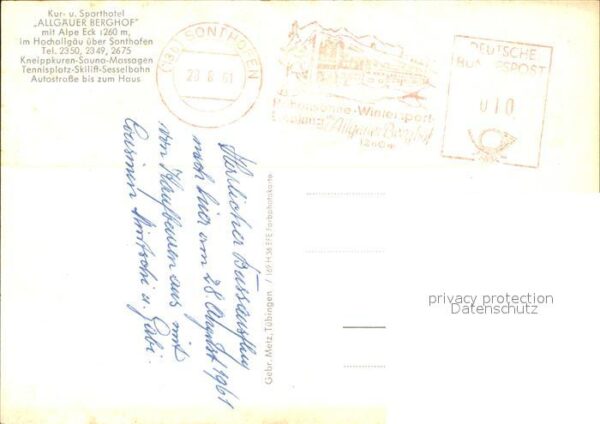 Kur- u. Sporthotel
„ALLGÄUER BERGHOF"
mit Alpe Eck 1260 m,
im Hochallgäu über Sonthofen
Tel. 2350, 2349, 2675
Kneippkuren-Sauna-Massagen
Tennisplatz-Skilift-Sesselbahn
Autostraße bis zum Haus
SONTHOFEN
28.8.61
Höhensonne-Wintersport-
Allgäuer Berghof
1260 m
DEUTSCHE
BUNDESPOST
010
Herrlicher Busausflug
nach hier am 28. August 1961
von Kaufbeuren aus mit
u. Gabi.
Gebr. Metz, Tübingen / 169 H 36 EFE Farbphotokarte
privacy protection
Datenschutz